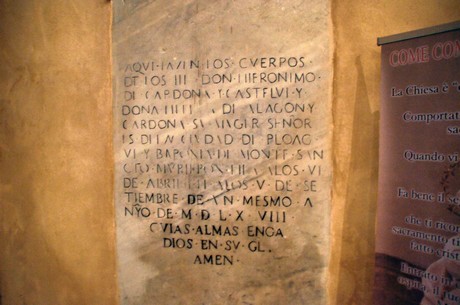 AQVI IAZEN LOS CVERPOS
DE LOS III DON HIERONIMO
DE CARDONA Y CASTELVI Y
DONA DALAGON Y
CARDONA SV MVGIER SEÑOR
DE CIVDAD DI PLOAG
VI Y BARONIA DE MONTE SAN
TO A LOS VI
DE ABRIL A LOS V DE SE
TIEMBRE DE VN MESMO A
NYO DE M D L X VIII
CVIAS ALMAS EN GA
DIOS EN SV GL
AMEN
COME COM
La Chiesa è "
Comportat
sac
Quando vi
Fa bene il se
che ti ricor
sacramento ti
fatto crist
Entrato in
ospite il